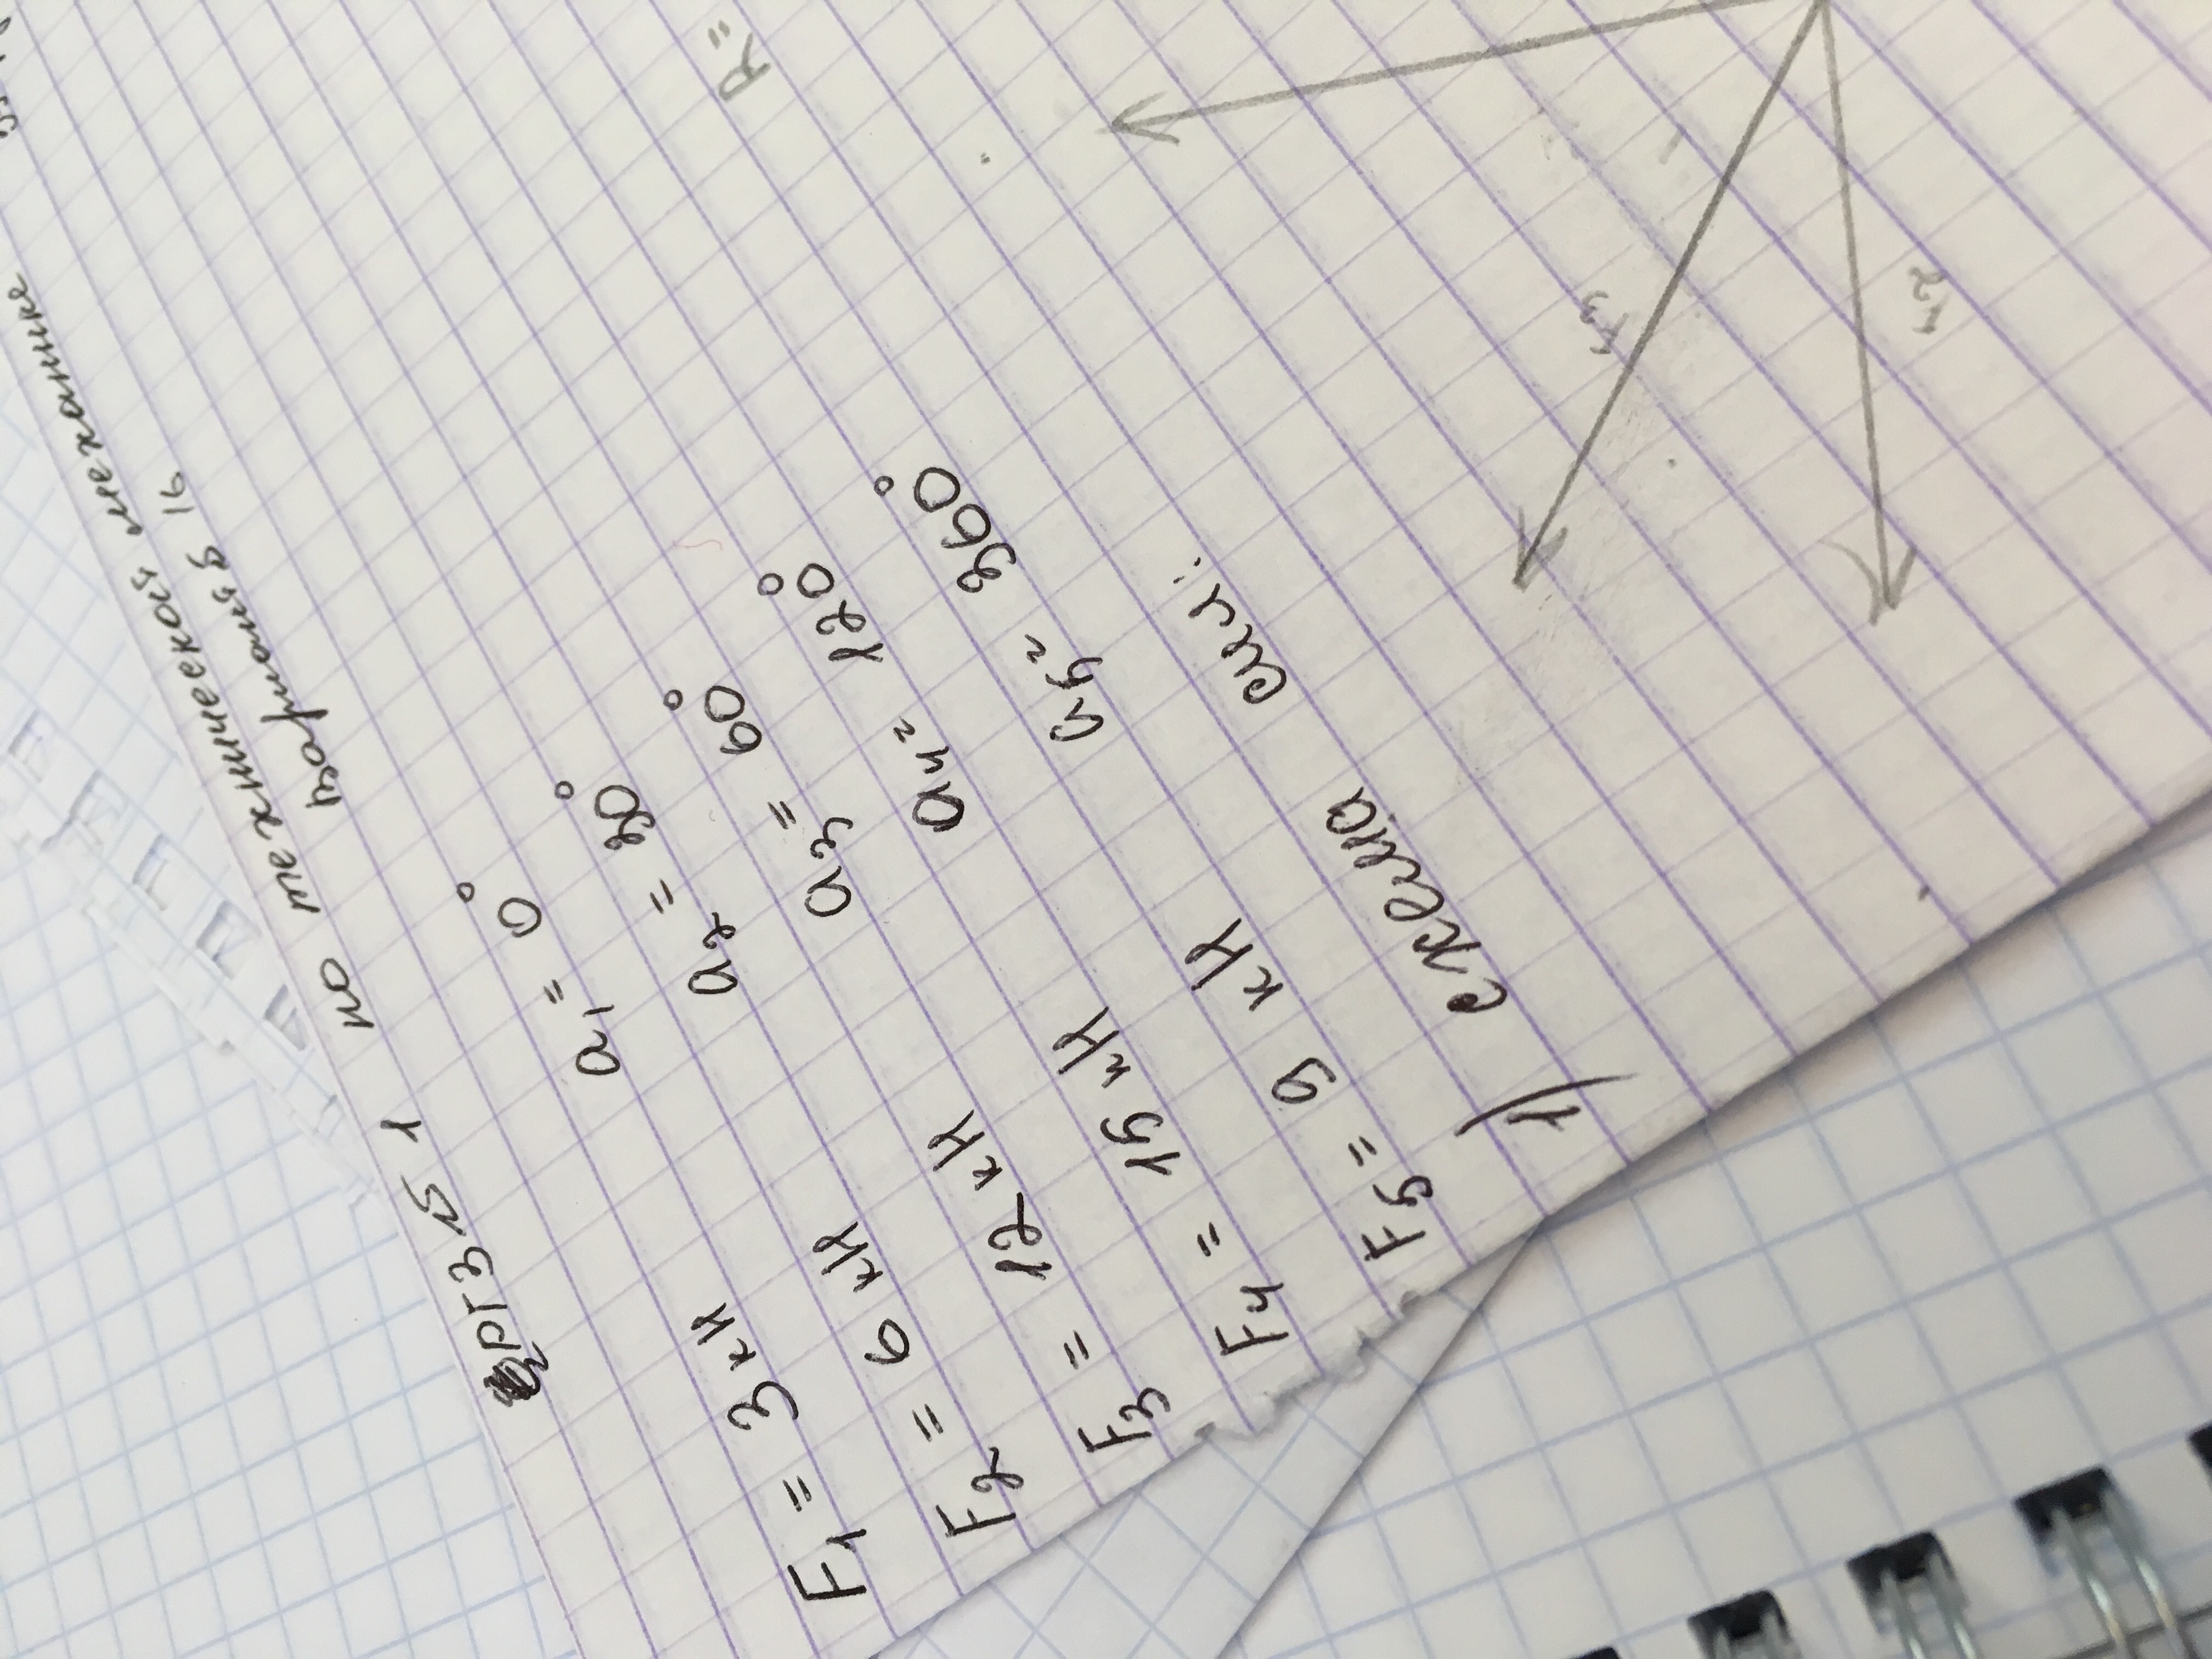 РГЗ № 1 по технической механике
вариант 16
F1 = 3 кН a1 = 0°
F2 = 6 кН a2 = 30°
F3 = 12 кН a3 = 60°
F4 = 15 кН a4 = 120°
F5 = 9 кН a5 = 360°
1) схема сил:
R=
F3
F2